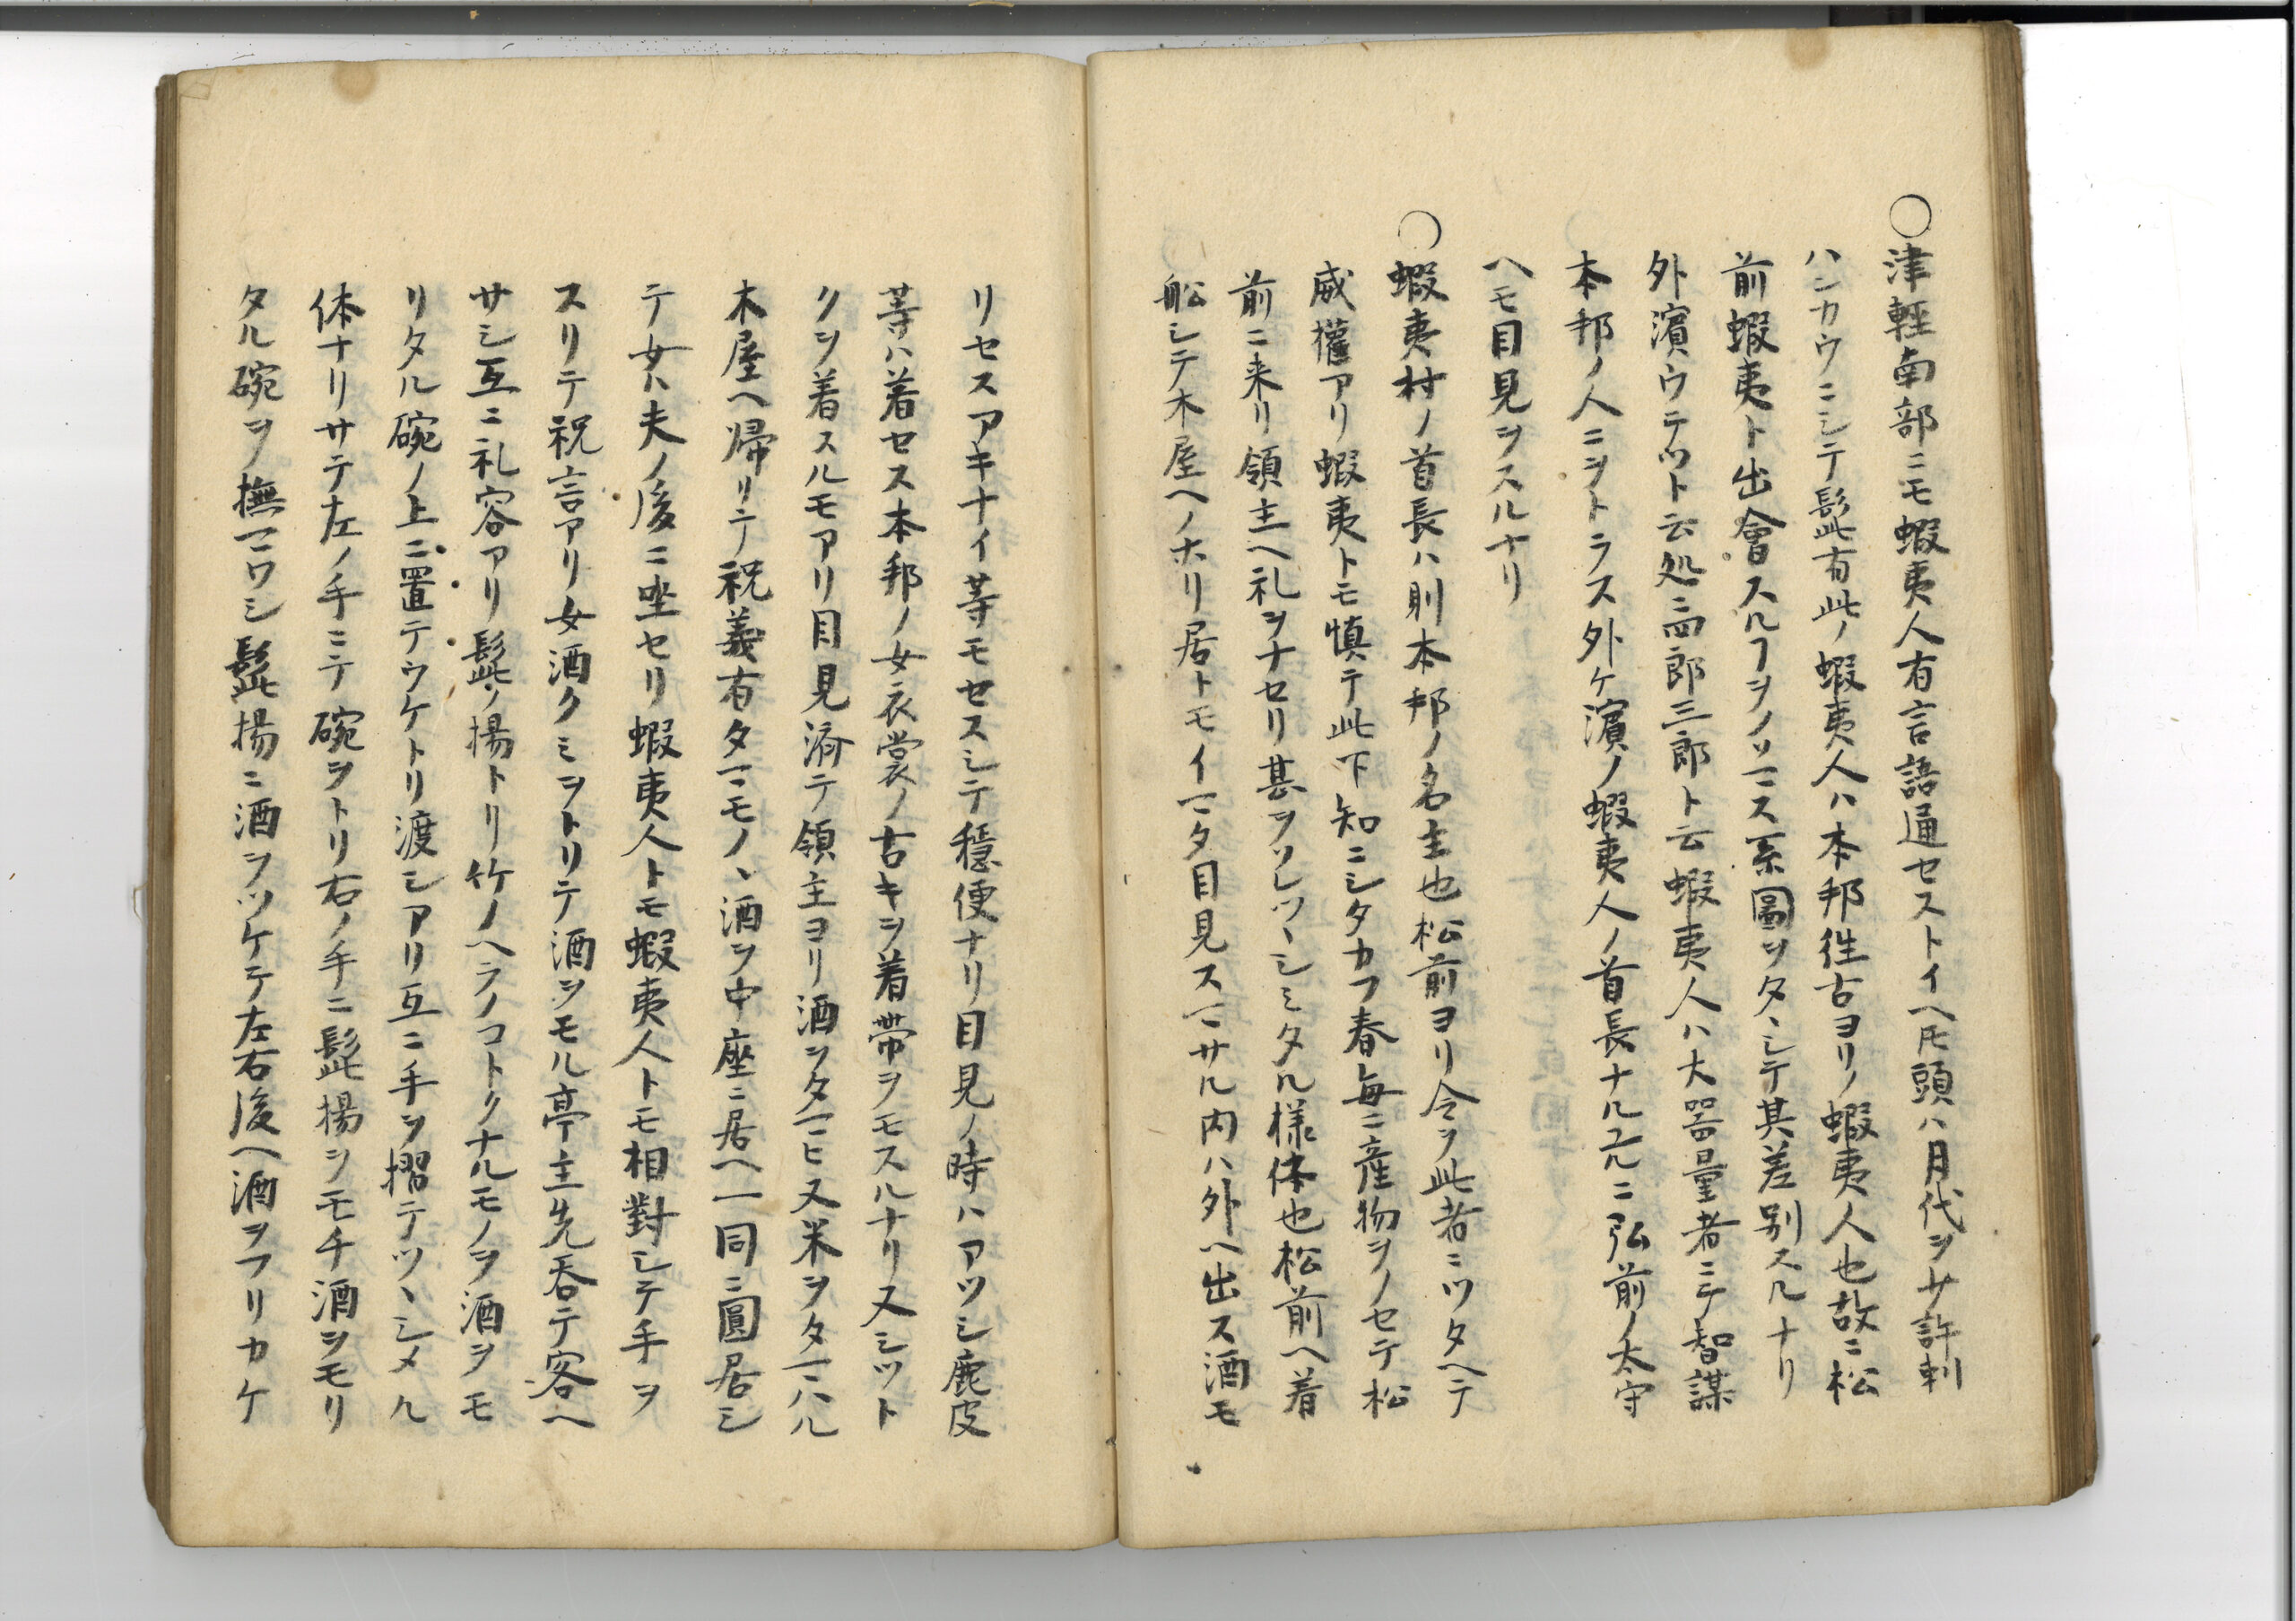 〇津輕南部ニモ蝦夷人有言語通セストイヘ𪜈頭ハ月代ヲサ許剃
ハンカウニシテ髭有此ノ蝦夷人ハ本邦徃古ヨリノ蝦夷人也故ニ松
前蝦夷ト出會スルヿヲノソマス系圖ヲタヽシテ其差別スルナリ
外濱ウテツト云処ニ四郎三郎ト云蝦夷人ハ大器量者ニテ智謀
本邦ノ人ニヲトラス外ケ濱ノ蝦夷人ノ首長ナル𠃔ニ弘前ノ太守
ヘモ目見ヲスルナリ
〇蝦夷村ノ首長ハ則本邦ノ名主也松前ヨリ令ヲ此者ニツタヘテ
威權アリ蝦夷トモ慎テ此下知ニシタカフ春毎ニ産物ヲノセテ松
前ニ来リ領主ヘ礼ヲナセリ甚ヲソレツヽシミタル様体也松前ヘ着
舩シテ木屋ヘノホリ居トモイマタ目見スマサル内ハ外ヘ出ス酒モ
リセスアキナイ等モセスシテ穏便ナリ目見ノ時ハアツシ鹿皮
等ハ着セス本邦ノ女衣裳ノ古キヲ着帯ヲモスルナリ又シツト
クヲ着スルモアリ目見済テ領主ヨリ酒ヲタマヒ又米ヲタマハル
木屋ヘ帰リテ祝義有タマモノヽ酒ヲ中座ニ居ヘ一同ニ圓居シ
テ女ハ夫ノ後ニ坐セリ蝦夷人トモ蝦夷人トモ相對シテ手ヲ
スリテ祝言アリ女酒クミヲトリテ酒ヲモル亭主先呑テ客ヘ
サシ互ニ礼容アリ髭ノ揚トリ竹ノヘラノコトクナルモノヲ酒ヲモ
リタル碗ノ上ニ置テウケトリ渡シアリ互ニ手ヲ摺テツヽシメル
体ナリサテ左ノ手ニテ碗ヲトリ右ノ手ニ髭揚ヲモチ酒ヲモリ
タル碗ヲ撫マワシ髭揚ニ酒ヲツケテ左右後ヘ酒ヲフリカケ